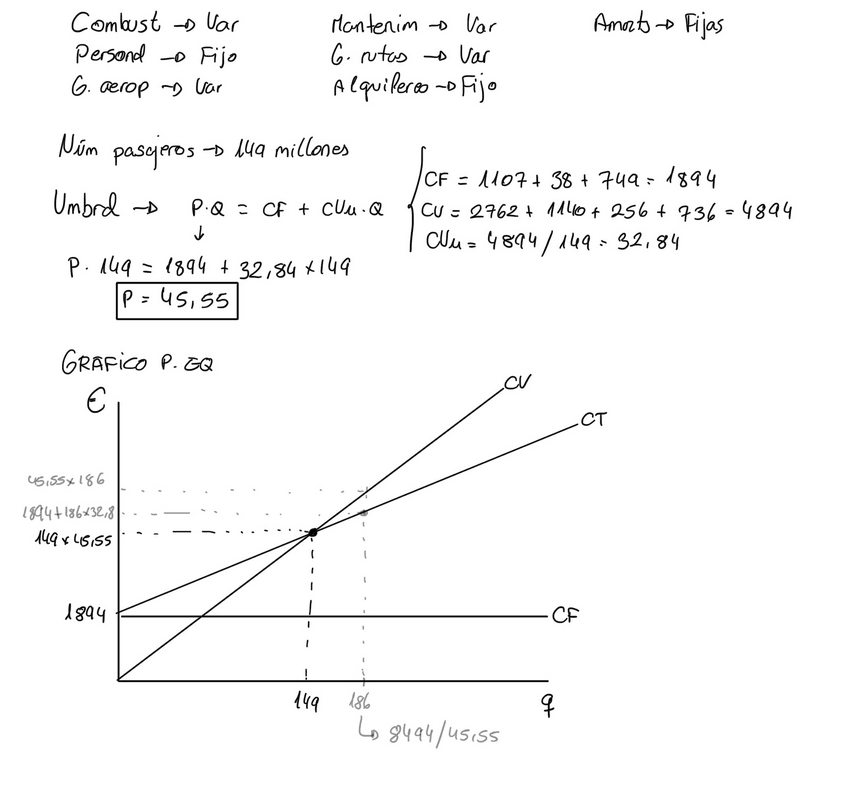 Combust → Var
Mantenim → Var
Amort → Fijas
Personal → Fijo
G. rutas → Var
G. aerop → Var
Alquileres → Fijo
Núm pasajeros → 149 millones
Umbral → P·Q = CF + CVu·Q
↓
P · 149 = 1894 + 32,84 × 149
P = 45,55
CF = 1107 + 38 + 749 = 1894
CV = 2762 + 1140 + 256 + 736 = 4894
CVu = 4894 / 149 = 32,84
GRÁFICO P. EQ
€
CV
CT
45,55 × 186
1894 + 186 × 32,8
149 × 45,55
1894
CF
149
186
q
↳ 8494/45,55